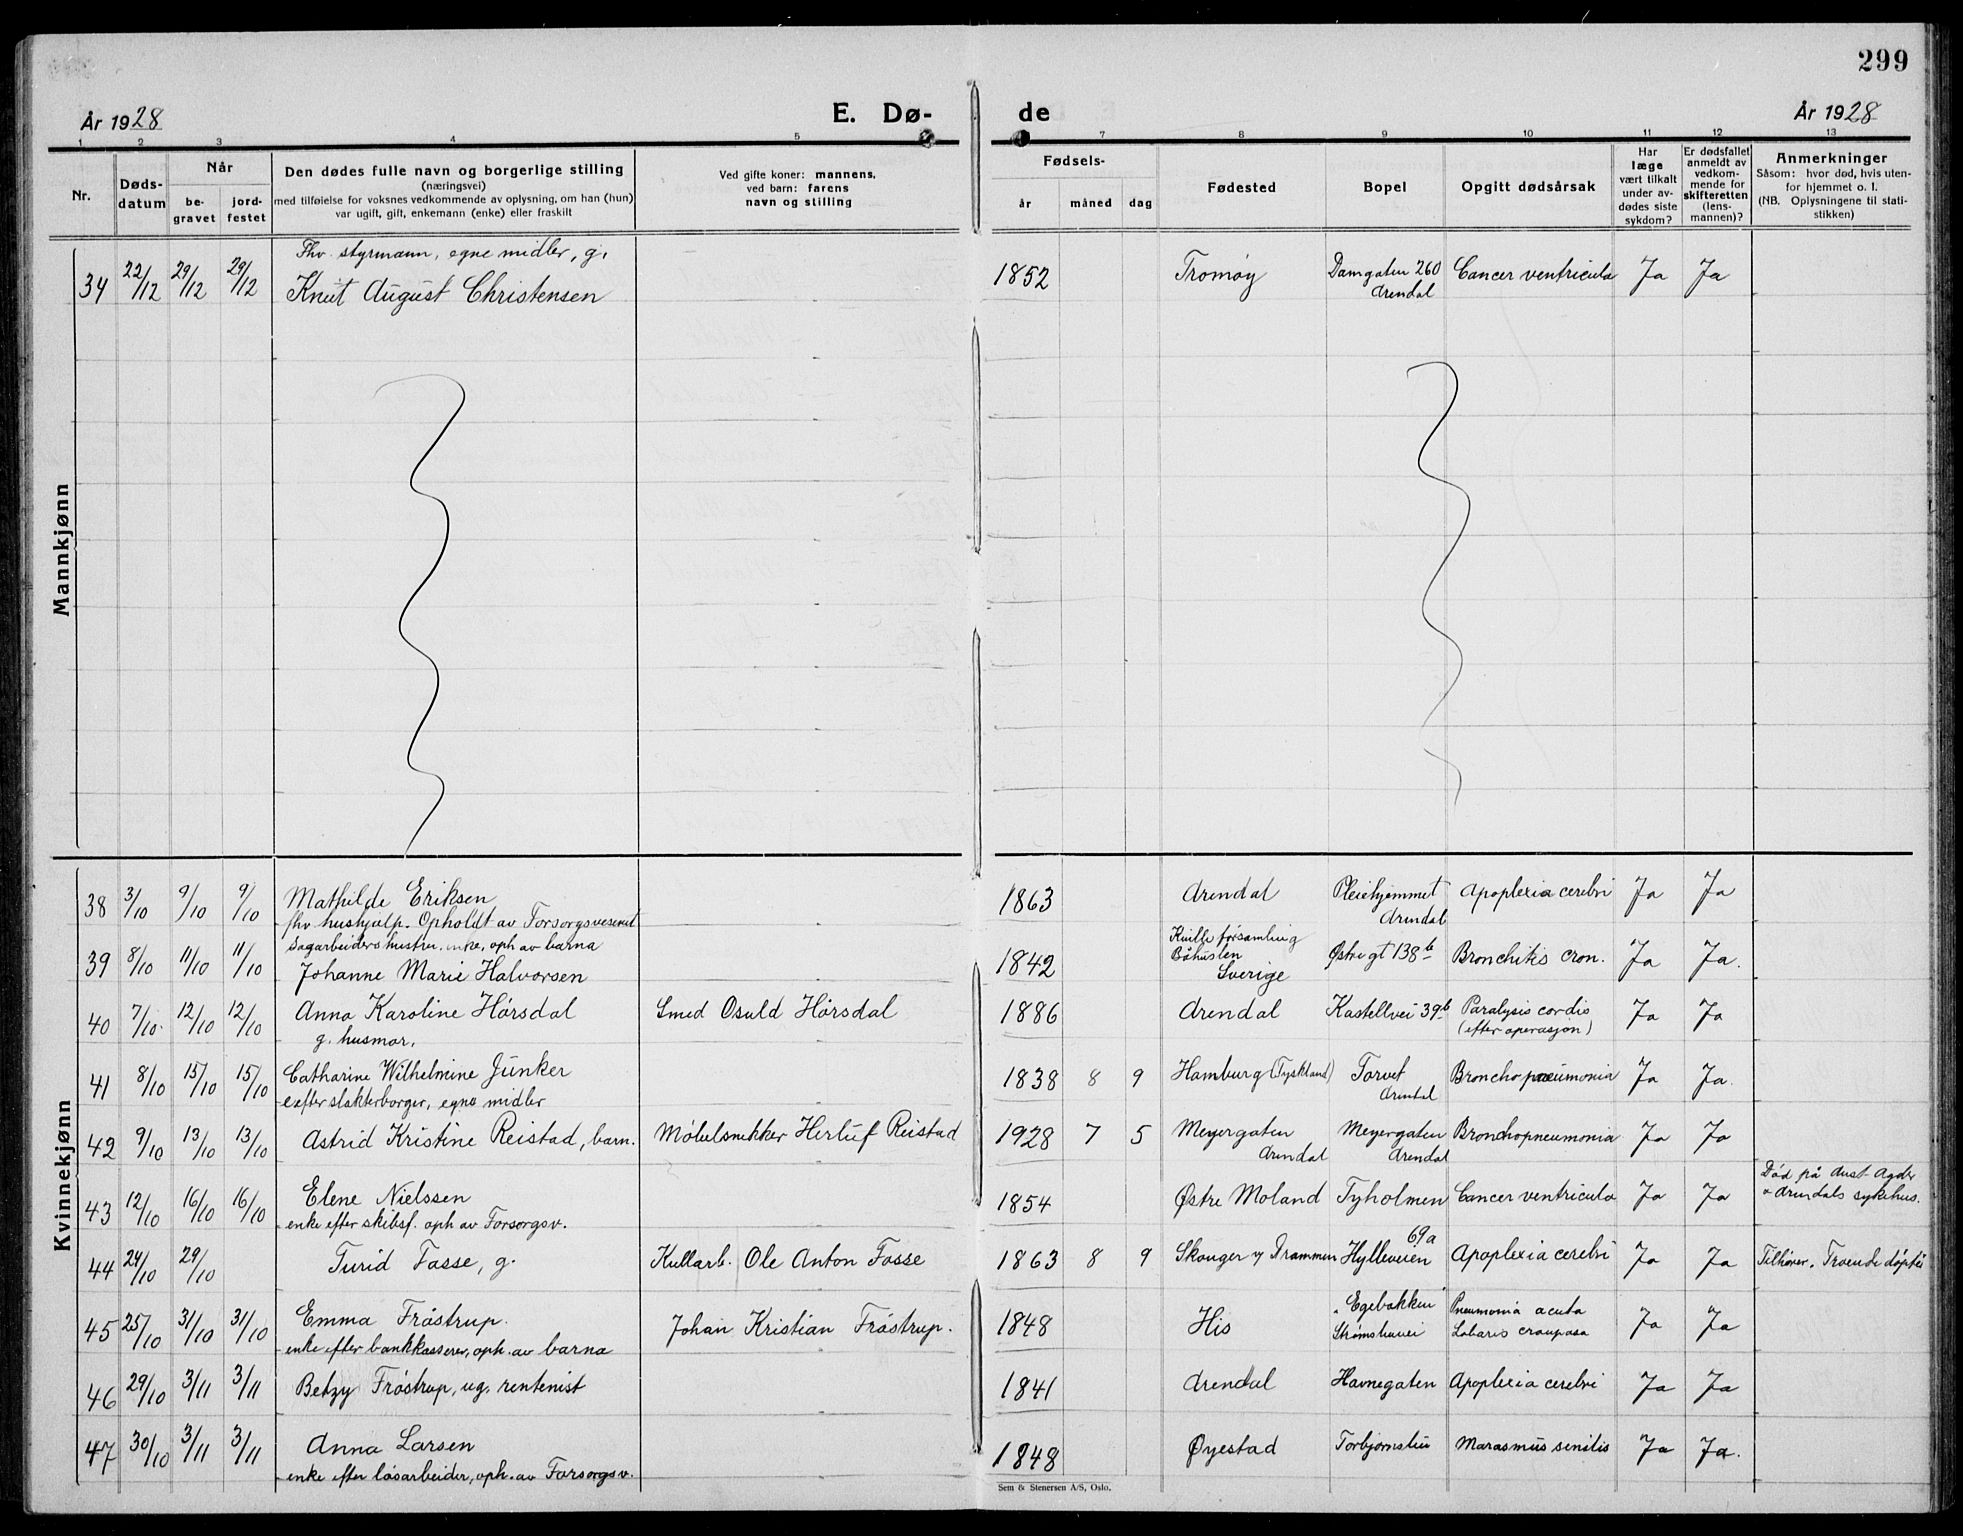 299
År 1928
E. Dø-
de
År 1928
1 2 3 4 5 7 8 9 10 11 12 13
Nr.
Døds-
datum
Når
be-
gravet
jord-
festet
Den dødes fulle navn og borgerlige stilling
(næringsvei)
med tilføielse for voksnes vedkommende av oplysning, om han (hun)
var ugift, gift, enkemann (enke) eller fraskilt
Ved gifte koner: mannens,
ved barn: farens
navn og stilling
Fødsels-
år måned dag
Fødested
Bopel
Opgitt dødsårsak
Har
læge
vært tilkalt
under av-
dødes siste
sykdom?
Er dødsfallet
anmeldt av
vedkom-
mende for
skifteretten
(lens-
mannen)?
Anmerkninger
Såsom: hvor død, hvis uten-
for hjemmet o. l.
(NB. Oplysningene til stati-
stikken)
Mannkjønn
Fhv. styrmann, egne midler, g.
34 22/12 29/12 29/12 Knut August Christensen 1852 Tromøy Damgaten 260 Cancer ventricula Ja Ja
Arendal
Kvinnekjønn
38 3/10 9/10 9/10 Mathilde Eriksen 1863 Arendal Pleiehjemmet Apoplexia cerebri Ja Ja
fhv hushjælp. Opholdt av Forsorgsvesenet Arendal
Sagarbeiders hustru. enke, oph av barna Kville forsamling
39 8/10 11/10 11/10 Johanne Marie Halvorsen 1842 Båhuslen Østregt 138b Bronchitis cron. Ja Ja.
Sverige
40 7/10. 12/10 12/10 Anna Karoline Hørsdal Smed Osuld Hørsdal 1886 Arendal Kastellvei 39b Paralysis cordis Ja Ja
g. husmor. (efter operasjon)
41 8/10 15/10 15/10 Catharine Wilhelmine Junker 1838 8 9 Hamburg (Tyskland) Torvet Bronchopneumonia Ja Ja.
e efter slakterborger, egne midler Arendal
42 9/10 13/10 13/10 Astrid Kristine Reistad, barn. Møbelsnekker Herluf Reistad 1928 7 5 Meyergaten Meyergaten Bronchopneumonia Ja Ja
Arendal Arendal
43 12/10 16/10 16/10 Elene Nielssen 1854 Østre Moland Tyholmen Cancer ventricula Ja Ja Død på Aust-Agder
enke efter skibsf. oph av Forsorgsv. + Arendals sykehus.
69a
44 24/10 29/10 Turid Fosse, g. Kullarb. Ole Anton Fosse 1863 8 9 Skouger v/ Drammen Hylleveien Apoplexia cerebri Ja Ja Tilhører. Troende døpte
45 25/10 31/10 31/10 Emma Frøstrup. Johan Kristian Frøstrup. 1848 His "Egebakken" Pneumonia acuta Ja Ja
enke efter bankkasserer, oph. av barna Lobaris crouposa
46 29/10 3/11 3/11 Betzy Frøstrup, ug. rentenist 1841 Arendal Havnegaten Apoplexia cerebri Ja Ja
47 30/10 3/11 3/11 Anna Larsen 1848 Øyestad Torbjørnsbu Marasmus senilis Ja Ja.
enke efter løsarbeider, oph. av Forsorgsv.
Sem & Stenersen A/S, Oslo.